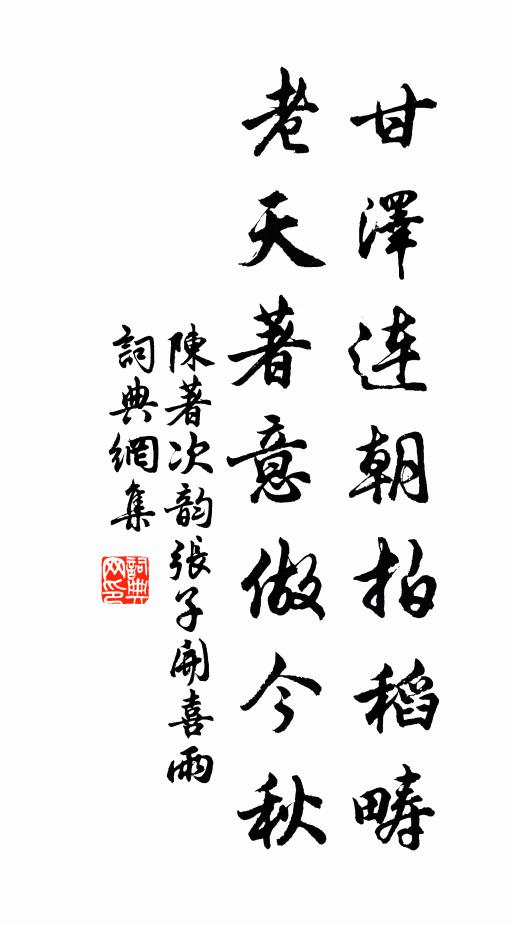 甘澤連朝拍稻疇
老天著意做今秋
陳著次韵張子開喜雨
詞典網集
詞典网印